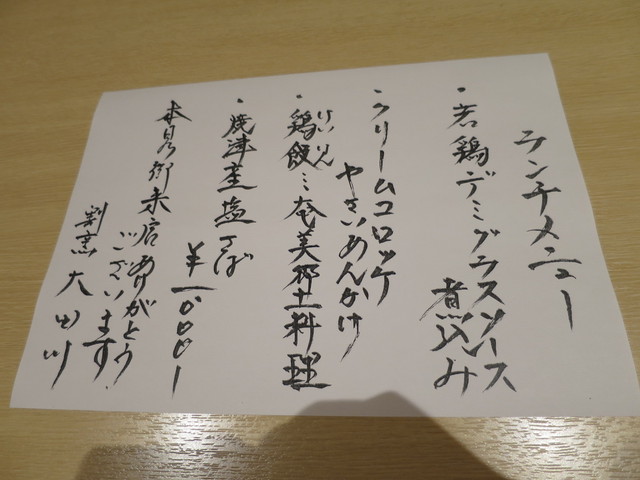 ランチメニュー
・若鶏デミグラスソース
煮込み
・クリームコロッケ
やさいあんかけ
・鶏飯…奄美郷土料理
けいはん
・焼津産塩さば
¥一〇〇〇ー
本日御来店ありがとう
ございます。
割烹 大田川